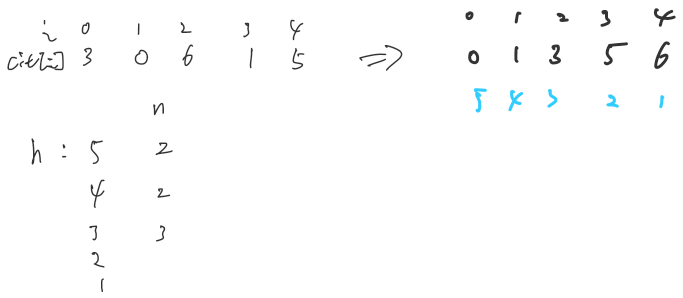 i 0 1 2 3 4
cit[i] 3 0 6 1 5 => 0 1 2 3 4
0 1 3 5 6
5 4 3 2 1
n
h : 5 2
4 2
3 3
2
1